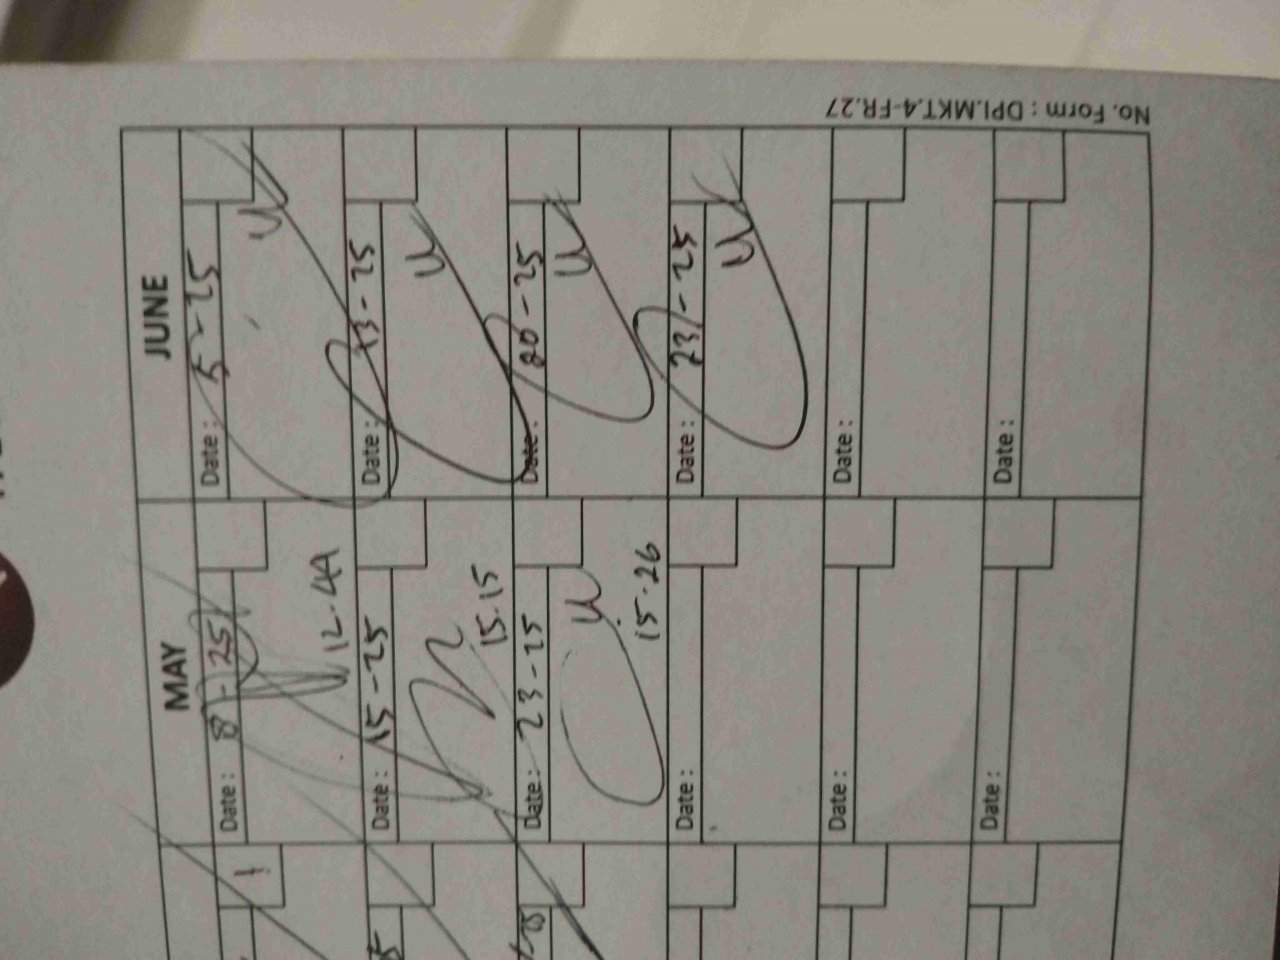 MAY
Date : 8 - 25
12.49
Date : 15 - 25
15.15
Date : 23 - 25
15.26
Date :
Date :
Date :
JUNE
Date : 5 - 25
Date : 13 - 25
Date : 20 - 25
Date : 23 - 25
Date :
Date :
No. Form : DPI.MKT.4-FR.27